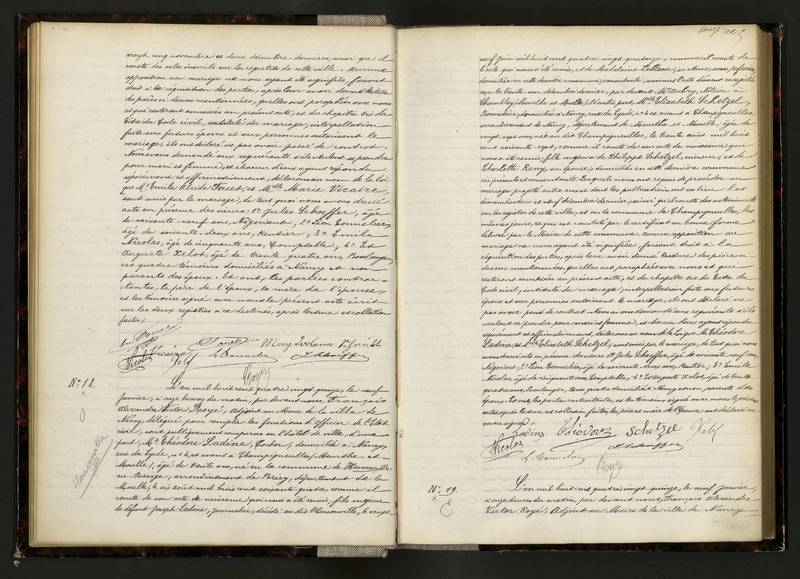 vingt cinq novembre et deux décembre derniers, ainsi qu'il
conste des actes inscrits sur les registres de cette ville. Aucune
opposition au mariage ne nous ayant été signifiée, faisant
droit à la réquisition des parties, après leur avoir donné lecture
des pièces ci dessus mentionnées, qu'elles ont paraphées avec nous
et qui resteront annexées au présent acte, et du chapitre six du
titre du Code civil, intitulé du mariage, interpellation
faite aux futurs époux et aux personnes autorisant le
mariage, ils ont déclaré ne pas avoir passé de contrat.
Nous avons demandé aux requérants s'ils veulent se prendre
pour mari et femme, et chacun d'eux ayant répondu
séparément et affirmativement, déclarons au nom de la loi
que Mr Emile Toues et Melle Marie Vicaire,
sont unis par le mariage, de tout quoi nous avons dressé
acte en présence des sieurs: 1° Jules Schaeffer, âgé
de soixante-neuf ans, Négociant, 2° Léon Connelier,
âgé de soixante-deux ans, Rentier, 3° Emile
Nicolas, âgé de cinquante ans, Comptable, 4° Et
Auguste Xelot, âgé de trente quatre ans, Boulanger,
ces quatre témoins domiciliés à Nancy et non
parents des époux. Et ont, les parties contrac-
tantes, le père de l'époux, la mère de l'épouse
et les témoins signé avec nous le présent acte écrit
sur les deux registres à ce destinés, après lecture et collation
faites.
Nicolas
N° 18.
L'an mil huit cent quatre vingt quinze, le neuf
janvier, à onze heures du matin, par devant nous, François
Alexandre Victor Royé, Adjoint au Maire de la ville de
Nancy, délégué pour remplir les fonctions d'officier de l'Etat
civil, ont publiquement comparu en l'hôtel de ville, d'une
part, Mr Théodore Ladène, domicilié à Nancy,
rue du Lycée, n° 6, et avant à Champigneulles (Meurthe et
Moselle), âgé de trente ans, né en la commune de
arrondissement de Briey, département de la
Moselle, le six août mil huit cent soixante quatre, comme il
conste de son acte de naissance qui nous a été remis, fils majeur
de défunt Joseph Ladène, journalier, décédé au dit le vingt
neuf juin mil huit cent quatre vingt quatorze, comme il conste de
l'acte qui nous a été remis, et de Madeleine
domiciliée en cette dernière commune, consentante, suivant l'acte dûment enregistré
reçu le trente un décembre dernier, par devant Me Aubry, Notaire à
Chambley (Meurthe et Moselle), d'autre part, Melle Elisabeth Schetzel,
domiciliée à Nancy, rue du Lycée, n° 6 et avant à Champigneulles,
arrondissement de Nancy, département de Meurthe et Moselle, âgée de
vingt sept ans, née au dit Champigneulles, le trente août mil huit
cent soixante sept, comme il conste de son acte de naissance qui
nous a été remis, fille majeure de Philippe Schetzel, mineur, et de
Charlotte Remy son épouse, domiciliés en cette dernière commune
ici présents et consentants. Lesquels nous ont requis de procéder au
mariage projeté entre eux et dont les publications ont eu lieu les
dimanches deux et neuf décembre dernier, ainsi qu'il conste des actes inscrits
sur les registres de cette ville, et en la commune de Champigneulles, les
mêmes jours, ce qui est constaté par le certificat en bonne forme
délivré par le Maire de cette commune. Aucune opposition au
mariage ne nous ayant été signifiée, faisant droit à la
réquisition des parties, après leur avoir donné lecture des pièces ci-
dessus mentionnées, qu'elles ont paraphées avec nous et qui
resteront annexées au présent acte, et du chapitre six du titre du
Code civil, intitulé du mariage, interpellation faite aux futurs
époux et aux personnes autorisant le mariage, ils ont déclaré ne
pas avoir passé de contrat. Nous avons demandé aux requérants s'ils
veulent se prendre pour mari et femme, et chacun d'eux ayant répondu
séparément et affirmativement, déclarons au nom de la loi que Mr Théodore
Ladène et Melle Elisabeth Schetzel, sont unis par le mariage, de tout quoi nous
avons dressé acte en présence des sieurs 1° Jules Schaeffer, âgé de soixante neuf ans,
Négociant, 2° Léon Connelier, âgé de soixante deux ans, Rentier, 3° Emile
Nicolas, âgé de cinquante ans, Comptable, 4° Et Auguste Xelot, âgé de trente
quatre ans, Boulanger, tous quatre domiciliés à Nancy et non parents des
époux. Et ont, les parties contractantes, et les témoins signé avec nous le présent
acte après lecture et collation faites, les père et mère de l'épouse, ont déclaré ne
savoir signer.
Ladène Théodore Schetzel Xelot
Nicolas
N° 19.
L'an mil huit cent quatre vingt quinze, le neuf janvier,
à onze heures du matin, par devant nous, François Alexandre
Victor Royé, Adjoint au Maire de la ville de Nancy